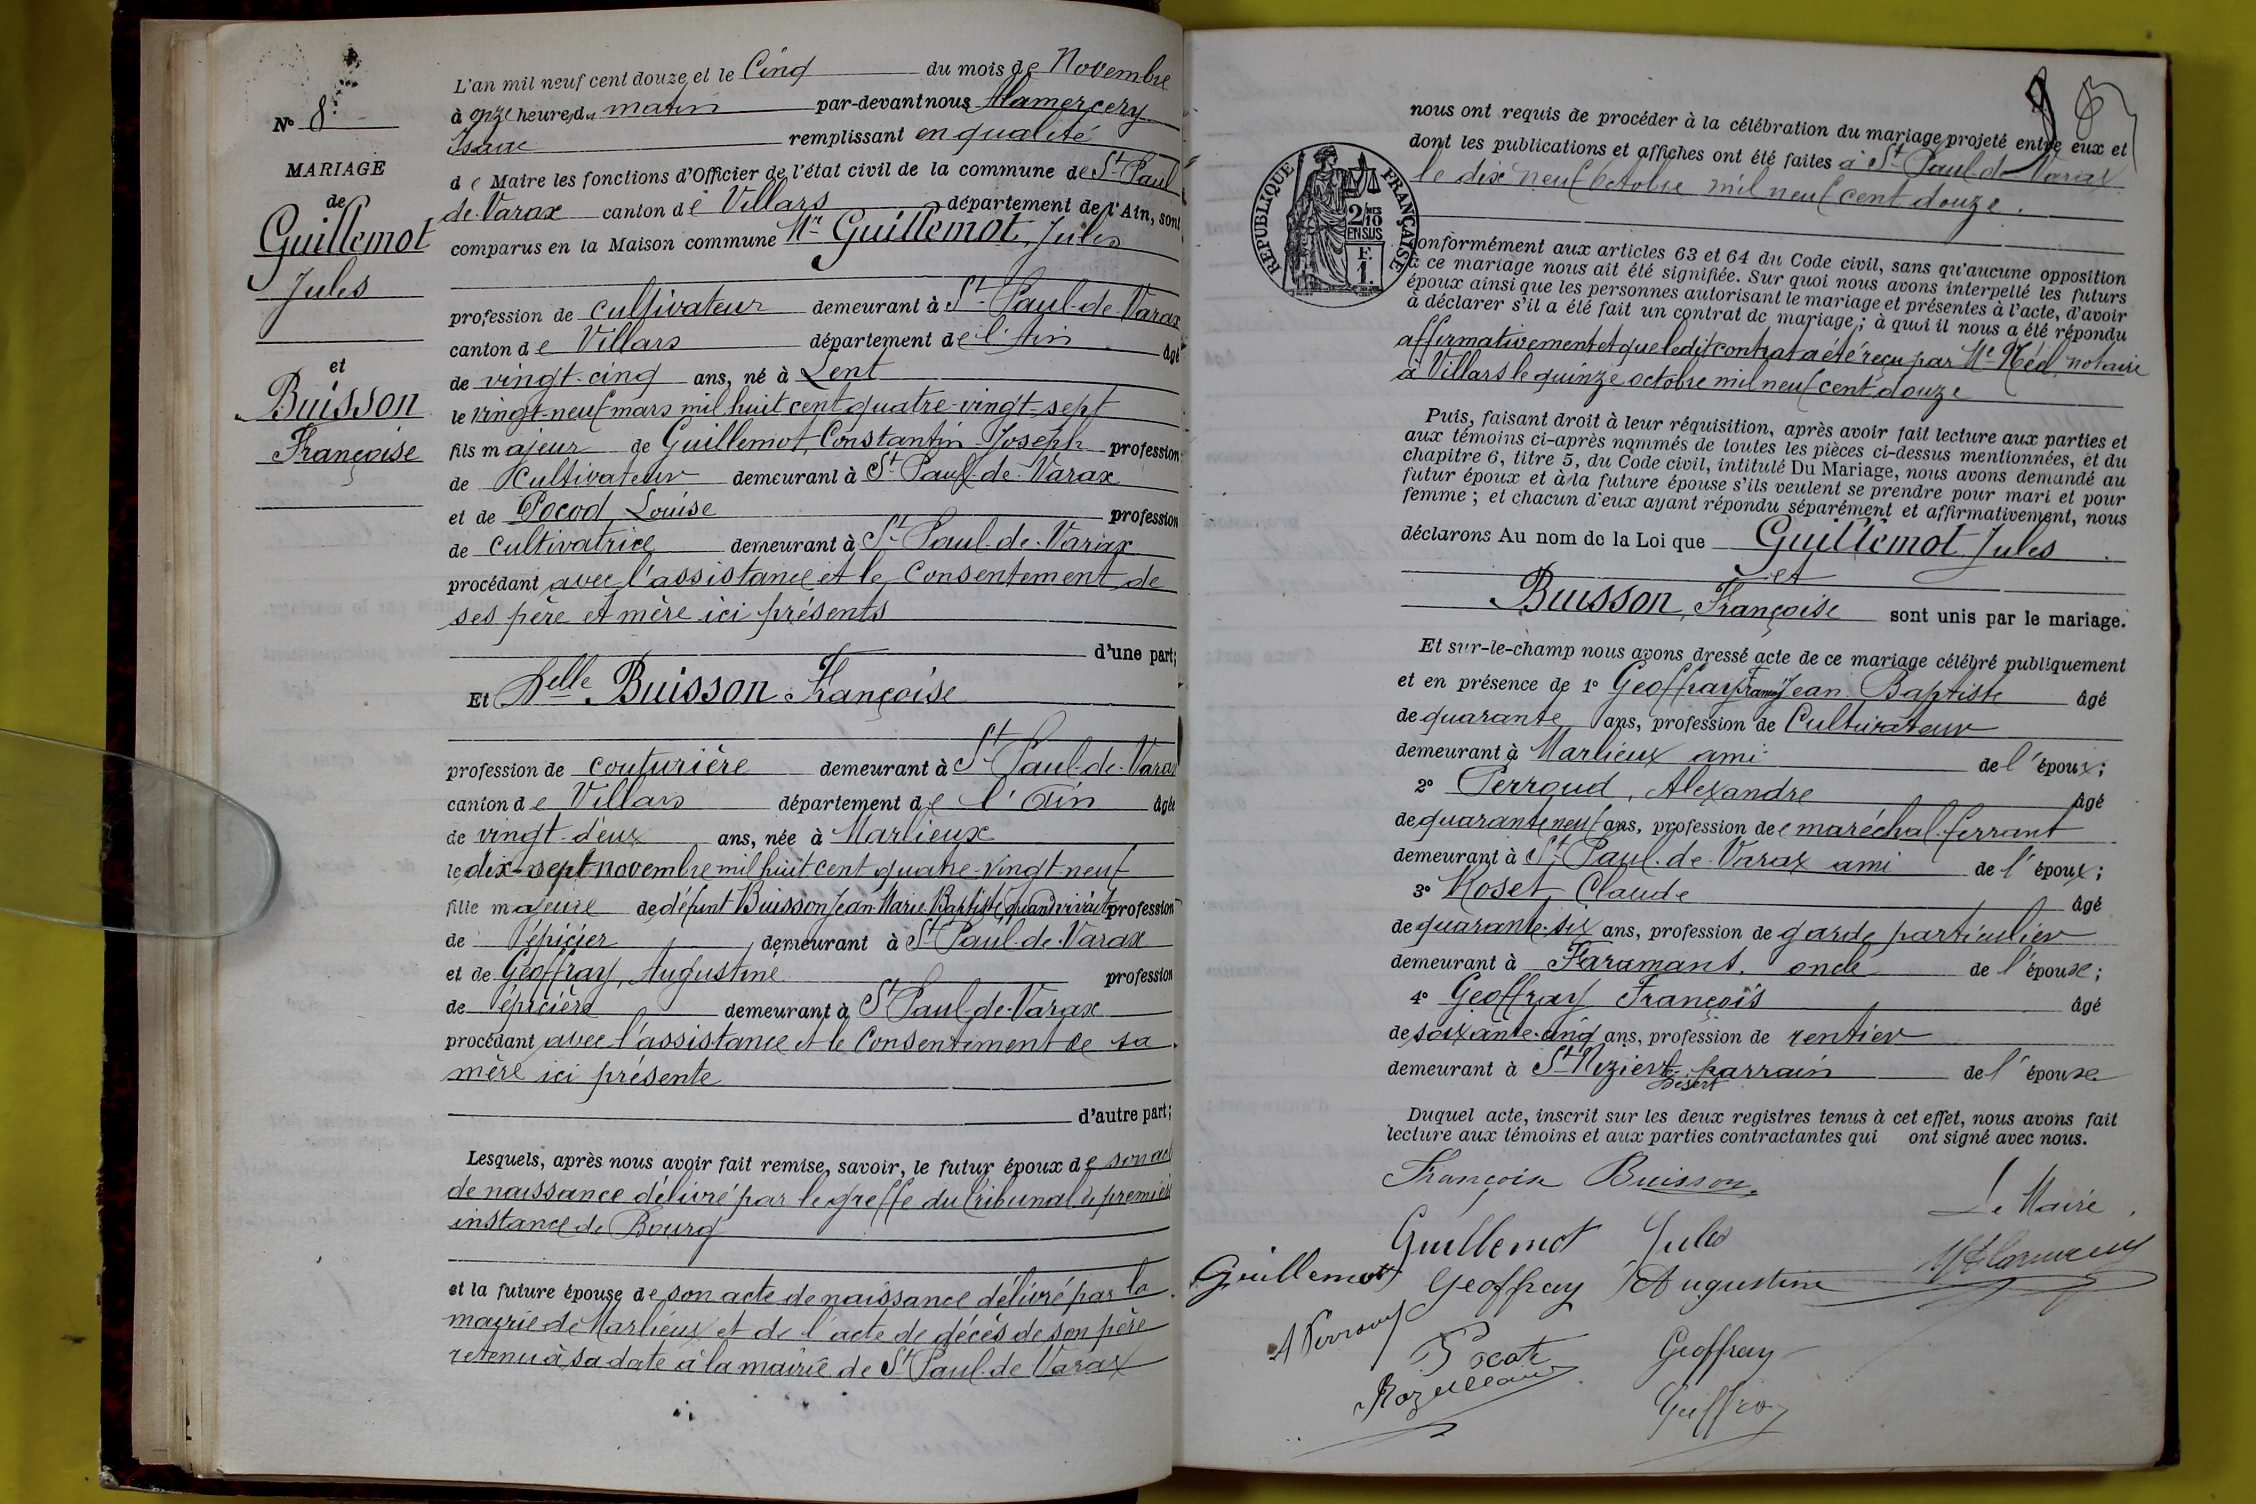 L'an mil neuf cent douze et le Cinq du mois de Novembre
à onze heures du matin par-devant nous Mamercery
Isaac remplissant en qualité
de Maire les fonctions d'Officier de l'état civil de la commune de St Paul
de Varax canton de Villars département de l'Ain, sont
comparus en la Maison commune Mr Guillemot, Jules
profession de cultivateur demeurant à St-Paul-de-Varax
canton de Villars département de l'Ain âgé
de vingt-cinq ans, né à Lent
le vingt-neuf mars mil huit cent quatre-vingt-sept
fils majeur de Guillemot, Constantin Joseph profession
de cultivateur demeurant à St Paul de Varax
et de Pocod, Louise profession
de cultivatrice demeurant à St-Paul-de-Varax
procédant avec l'assistance et le consentement de
ses père et mère ici présents
d'une part;
Et Delle Buisson Françoise
profession de couturière demeurant à St-Paul-de-Varax
canton de Villars département de l'Ain âgée
de vingt-deux ans, née à Marlieux
le dix-sept novembre mil huit cent quatre-vingt-neuf
fille majeure de défunt Buisson Jean Marie Baptiste, quand vivait profession
de épicier demeurant à St-Paul-de-Varax
et de Geoffray, Augustine profession
de épicière demeurant à St Paul-de-Varax
procédant avec l'assistance et le consentement de sa
mère ici présente
d'autre part;
Lesquels, après nous avoir fait remise, savoir, le futur époux de son acte
de naissance délivré par le greffe du tribunal de première
instance de Bourg
et la future épouse de son acte de naissance délivré par la
mairie de Marlieux et de l'acte de décès de son père
retenu à sa date à la mairie de St Paul de Varax
N° 8
MARIAGE
de
Guillemot
Jules
et
Buisson
Françoise
9
nous ont requis de procéder à la célébration du mariage projeté entre eux et
dont les publications et affiches ont été faites à St-Paul-de-Varax
le dix neuf octobre mil neuf cent douze.
RÉPUBLIQUE FRANÇAISE
2/10 MES
EN SUS
F.
1.
conformément aux articles 63 et 64 du Code civil, sans qu'aucune opposition
à ce mariage nous ait été signifiée. Sur quoi nous avons interpellé les futurs
époux ainsi que les personnes autorisant le mariage et présentes à l'acte, d'avoir
à déclarer s'il a été fait un contrat de mariage; à quoi il nous a été répondu
affirmativement et que ledit contrat a été reçu par Me Néd notaire
à Villars le quinze octobre mil neuf cent douze
Puis, faisant droit à leur réquisition, après avoir fait lecture aux parties et
aux témoins ci-après nommés de toutes les pièces ci-dessus mentionnées, et du
chapitre 6, titre 5, du Code civil, intitulé Du Mariage, nous avons demandé au
futur époux et à la future épouse s'ils veulent se prendre pour mari et pour
femme; et chacun d'eux ayant répondu séparément et affirmativement, nous
déclarons Au nom de la Loi que Guillemot Jules
et
Buisson, Françoise sont unis par le mariage.
Et sur-le-champ nous avons dressé acte de ce mariage célébré publiquement
et en présence de 1° Geoffray Jean Baptiste âgé
de quarante ans, profession de Cultivateur
demeurant à Marlieux ami de l'époux;
2° Perroud, Alexandre âgé
de quarante neuf ans, profession de maréchal-ferrant
demeurant à St-Paul-de-Varax ami de l'époux;
3° Roset, Claude âgé
de quarante-six ans, profession de garde particulier
demeurant à Faramans, oncle de l'épouse;
4° Geoffray François âgé
de soixante-cinq ans, profession de rentier
demeurant à St-Nizier le Désert parrain de l'épouse
Duquel acte, inscrit sur les deux registres tenus à cet effet, nous avons fait
lecture aux témoins et aux parties contractantes qui ont signé avec nous.
Françoise Buisson
Le Maire,
Guillemot Jules
Guillemot Geoffray Augustine
A Perroud
Pocot Geoffray